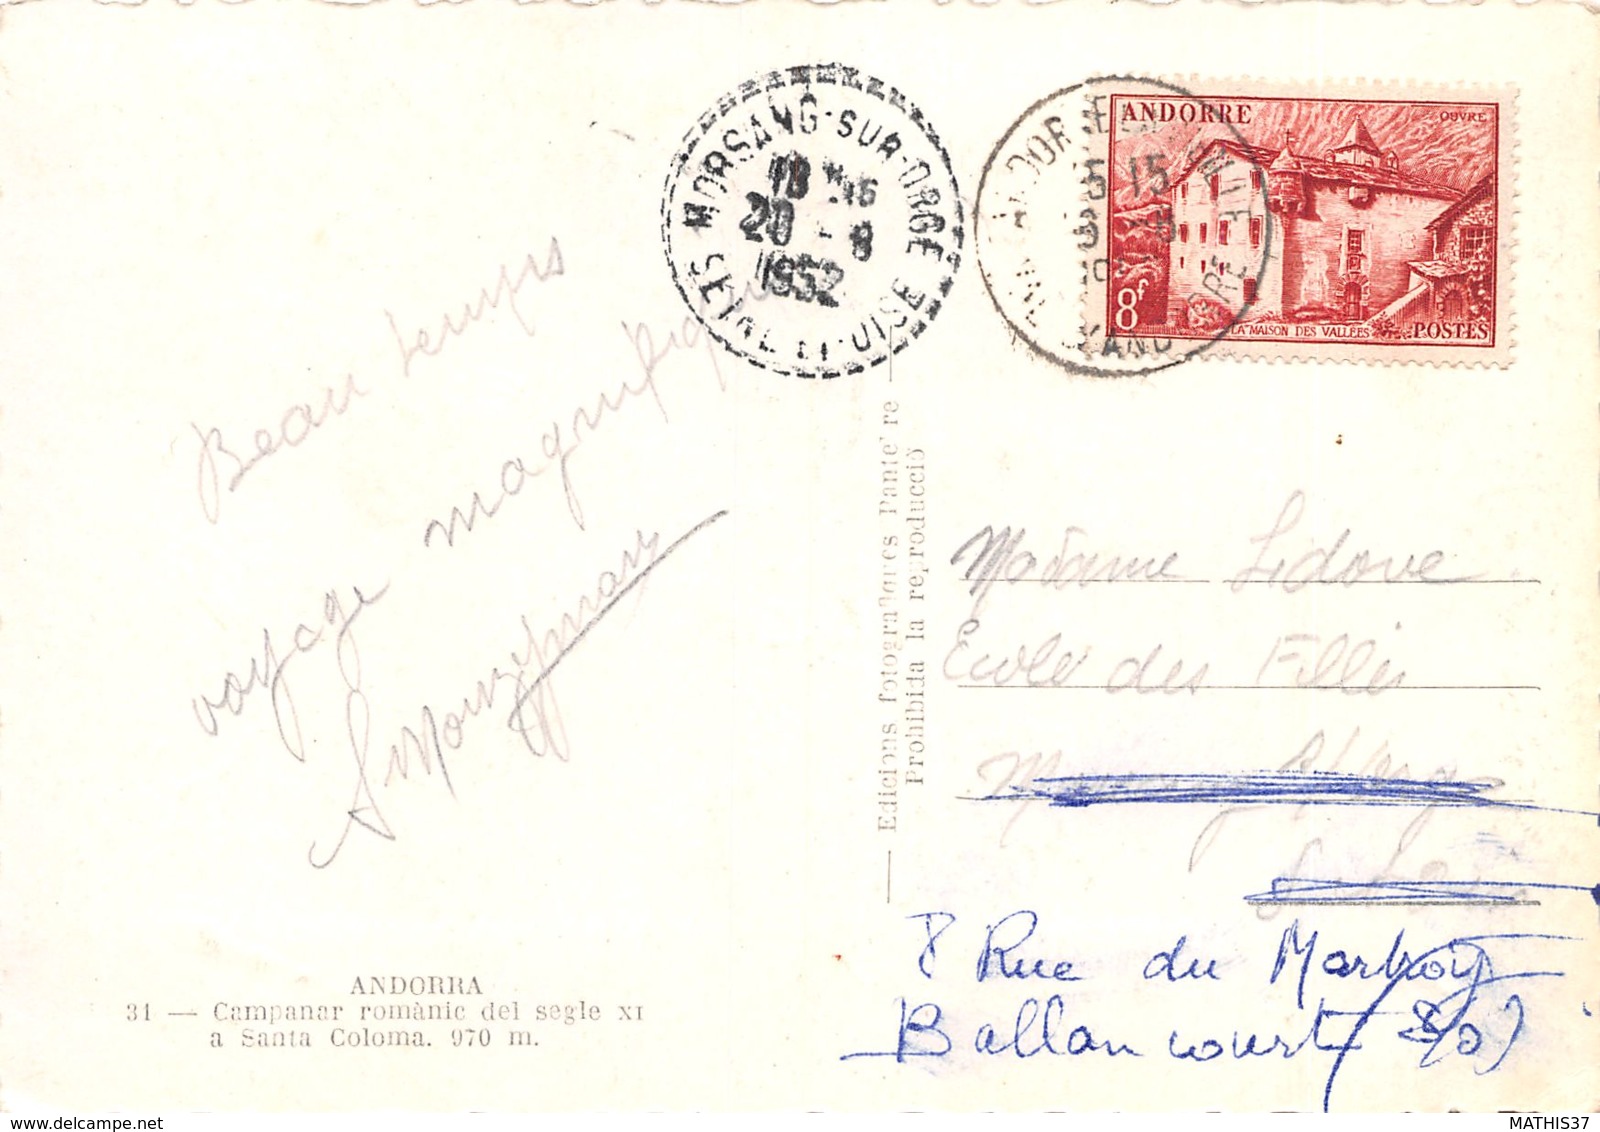 MORSANG-SUR-ORGE
20 - 8
1952
SEINE-ET-OISE
ANDORRE
OUVRÉ
8f
LA MAISON DES VALLÉES
POSTES
Beau temps
voyage magnifique
Edicions fotografiques
Prohibida la reproducció
Madame Lidove
Ecole des Filles
S/Orge
8 Rue du Martroy
Ballancourt S/O)
ANDORRA
31 — Campanar romànic del segle XI
a Santa Coloma. 970 m.
MATHIS37